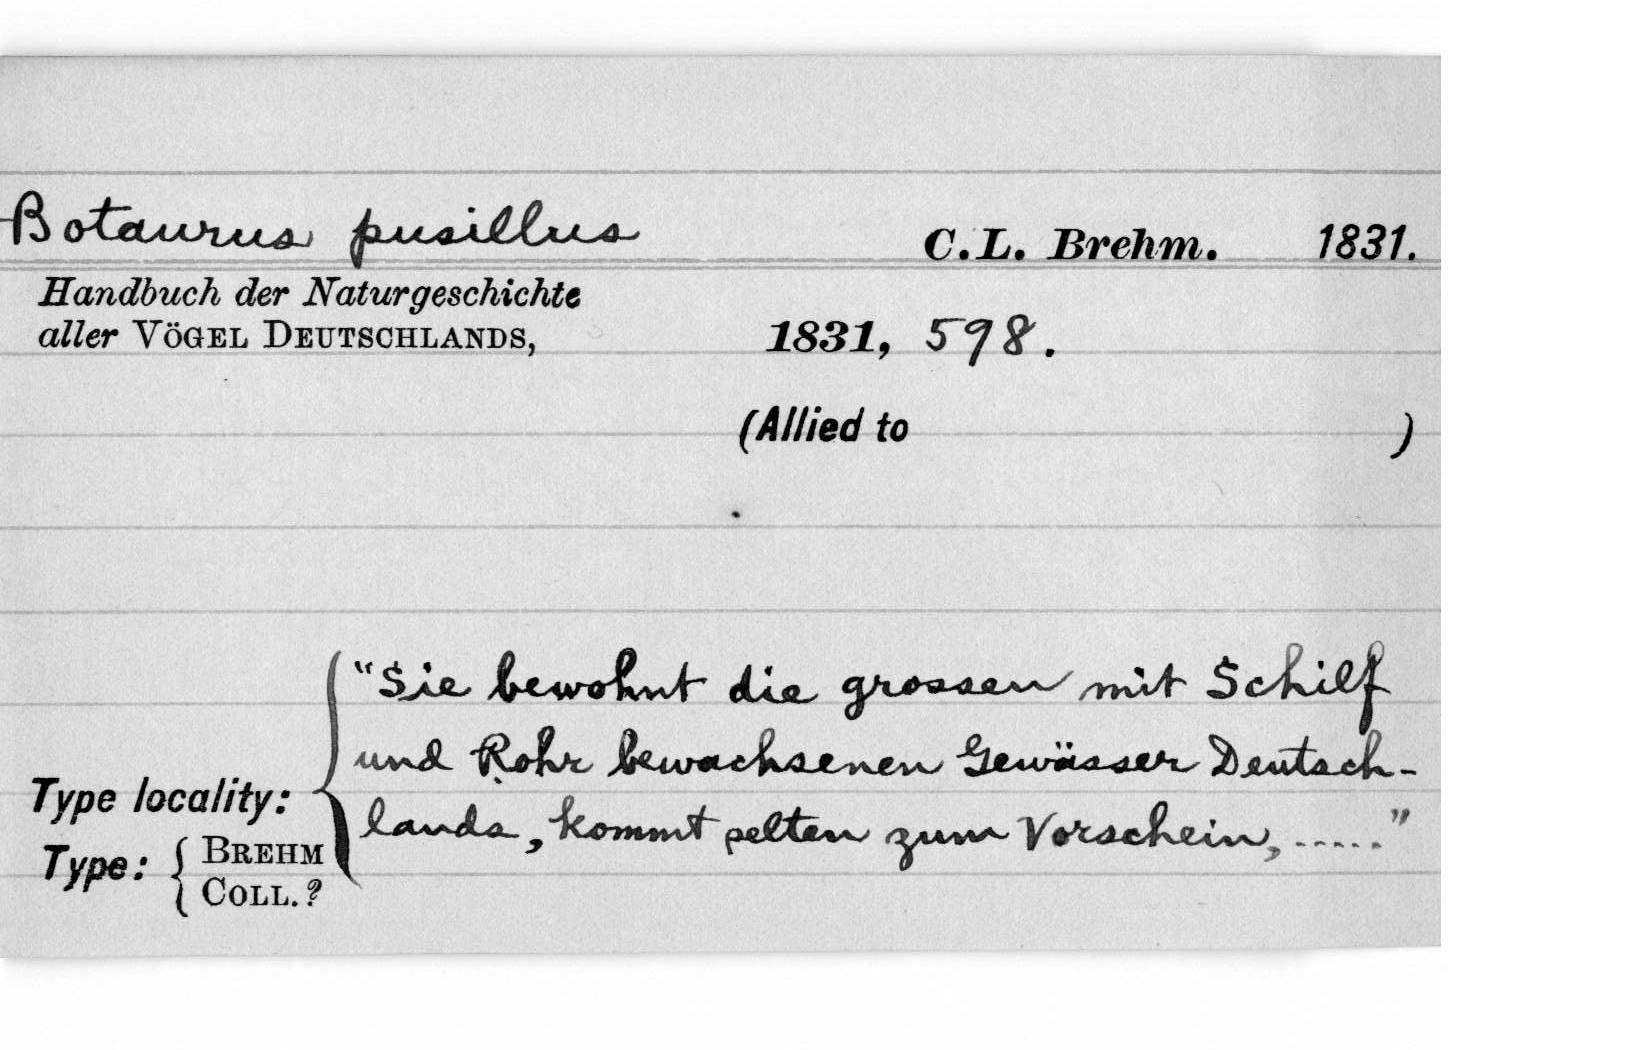 Botaurus pusillus C.L. Brehm. 1831.
Handbuch der Naturgeschichte
aller VÖGEL DEUTSCHLANDS, 1831, 598.
(Allied to )
"Sie bewohnt die grossen mit Schilf
und Rohr bewachsenen Gewässer Deutsch-
Type locality: lands, kommt selten zum Vorschein, ....."
Type: BREHM
COLL.?